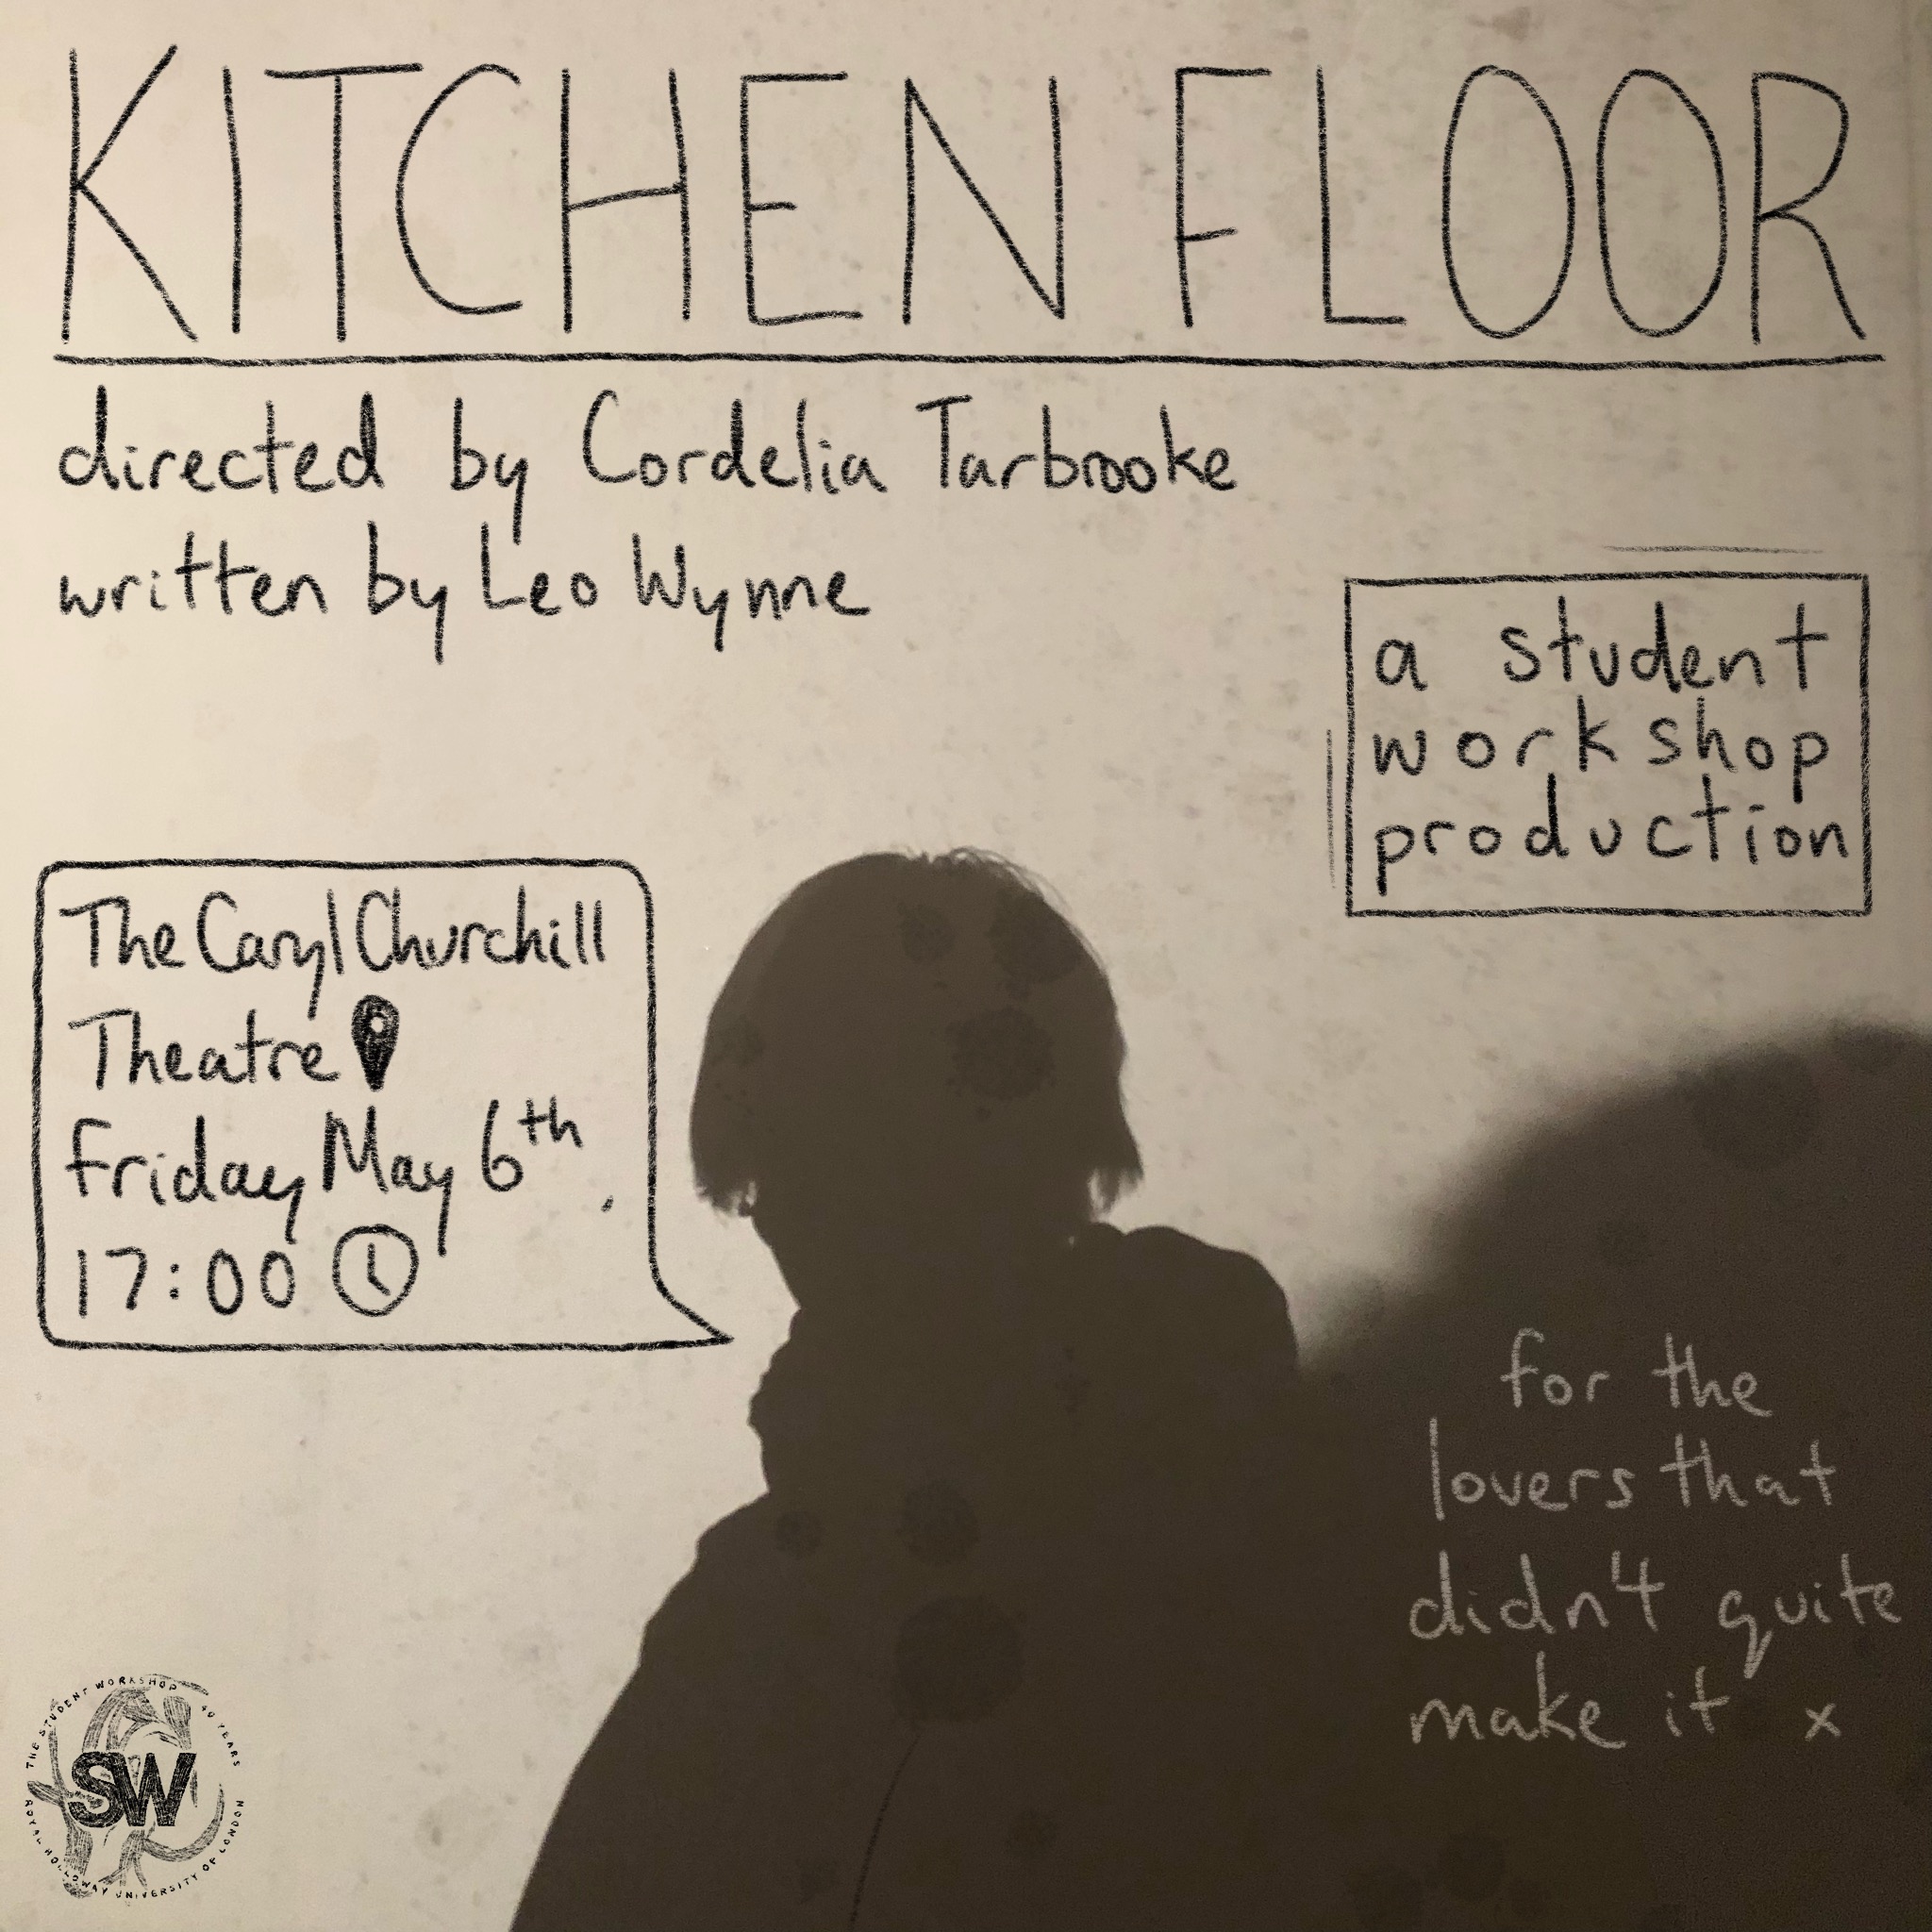 KITCHEN FLOOR
directed by Cordelia Tarbrooke
written by Leo Wynne
a student
workshop
production
The Caryl Churchill
Theatre
Friday May 6th
17:00
for the
lovers that
didn't quite
make it x
THE STUDENT WORKSHOP 40 YEARS
SW
ROYAL HOLLOWAY UNIVERSITY OF LONDON